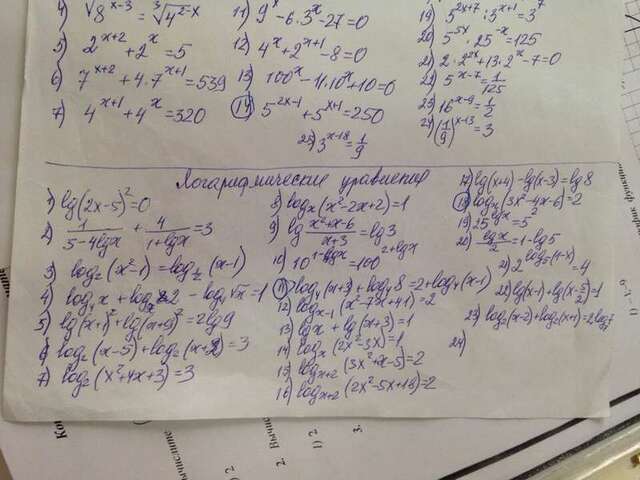 4) √8^(x-3) = ³√4^(2-x)
5) 2^(x+2) + 2^x = 5
6) 7^(x+2) + 4·7^(x+1) = 539
7) 4^(x+1) + 4^x = 320
11) 9^x - 6·3^x - 27 = 0
12) 4^x + 2^(x+1) - 8 = 0
13) 100^x - 11·10^x + 10 = 0
14) 5^(2x-1) + 5^(x+1) = 250
25) 3^(x-18) = 1/9
19) 5^(2x+7) : 3^(x+1) = 3^7
20) 5^(5x) · 25^(-x) = 125
21) 2·2^(2x) + 13·2^x - 7 = 0
22) 5^(x-7) = 1/125
23) 16^(x-9) = 1/2
24) (1/9)^(x-13) = 3
Логарифмические уравнения
1) lg(2x-5)² = 0
2) 1/(5-4lgx) + 4/(1+lgx) = 3
3) log₂(x²-1) = log_(1/2)(x-1)
4) log₄x + log 2 - log √x = 1
5) lg(x+1)² + lg(x+9)² = 2lg9
6) log₂(x-5) + log₂(x+2) = 3
7) log₂(x²+4x+3) = 3
8) logₓ(x²-2x+2) = 1
9) lg (x²+x-6)/(x+3) = lg3
10) 10^(1-lgx) = 100^(2+lgx)
11) log₄(x+3) + log₄8 = 2 + log₄(x-1)
12) log_(x-1)(x²-7x+41) = 2
13) lgx + lg(x+3) = 1
14) logₓ(2x²-3x) = 1
15) log_(x+2)(3x²+x-5) = 2
16) log_(x+2)(2x²-5x+18) = 2
17) lg(x+4) - lg(x-3) = lg8
18) log (3x²-4x-6) = 2
19) 25^(lgx) = 5²
20) lgx/2 = 1 - lg5
21) 2^(log₅(1-x)) = 4
22) lg(x-1) + lg(x-5/2) = 1
23) log₂(x-2) + log₂(x+1) = 2log 7
24)
2. Вычислите
1) 2
1) 2
3.